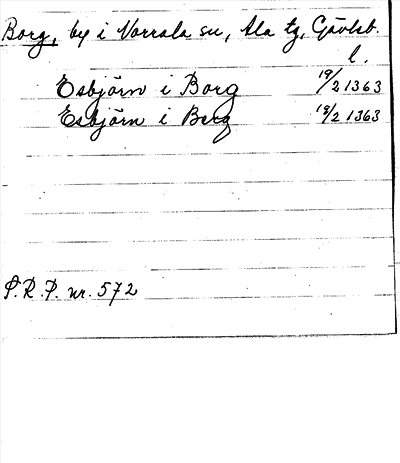 Borg, by i Norrala sn, Ala tg, Gävleb.
l.
Esbjörn i Borg 19/2 1363
Esbjörn i Berg 18/2 1363
S.R.P. nr. 572